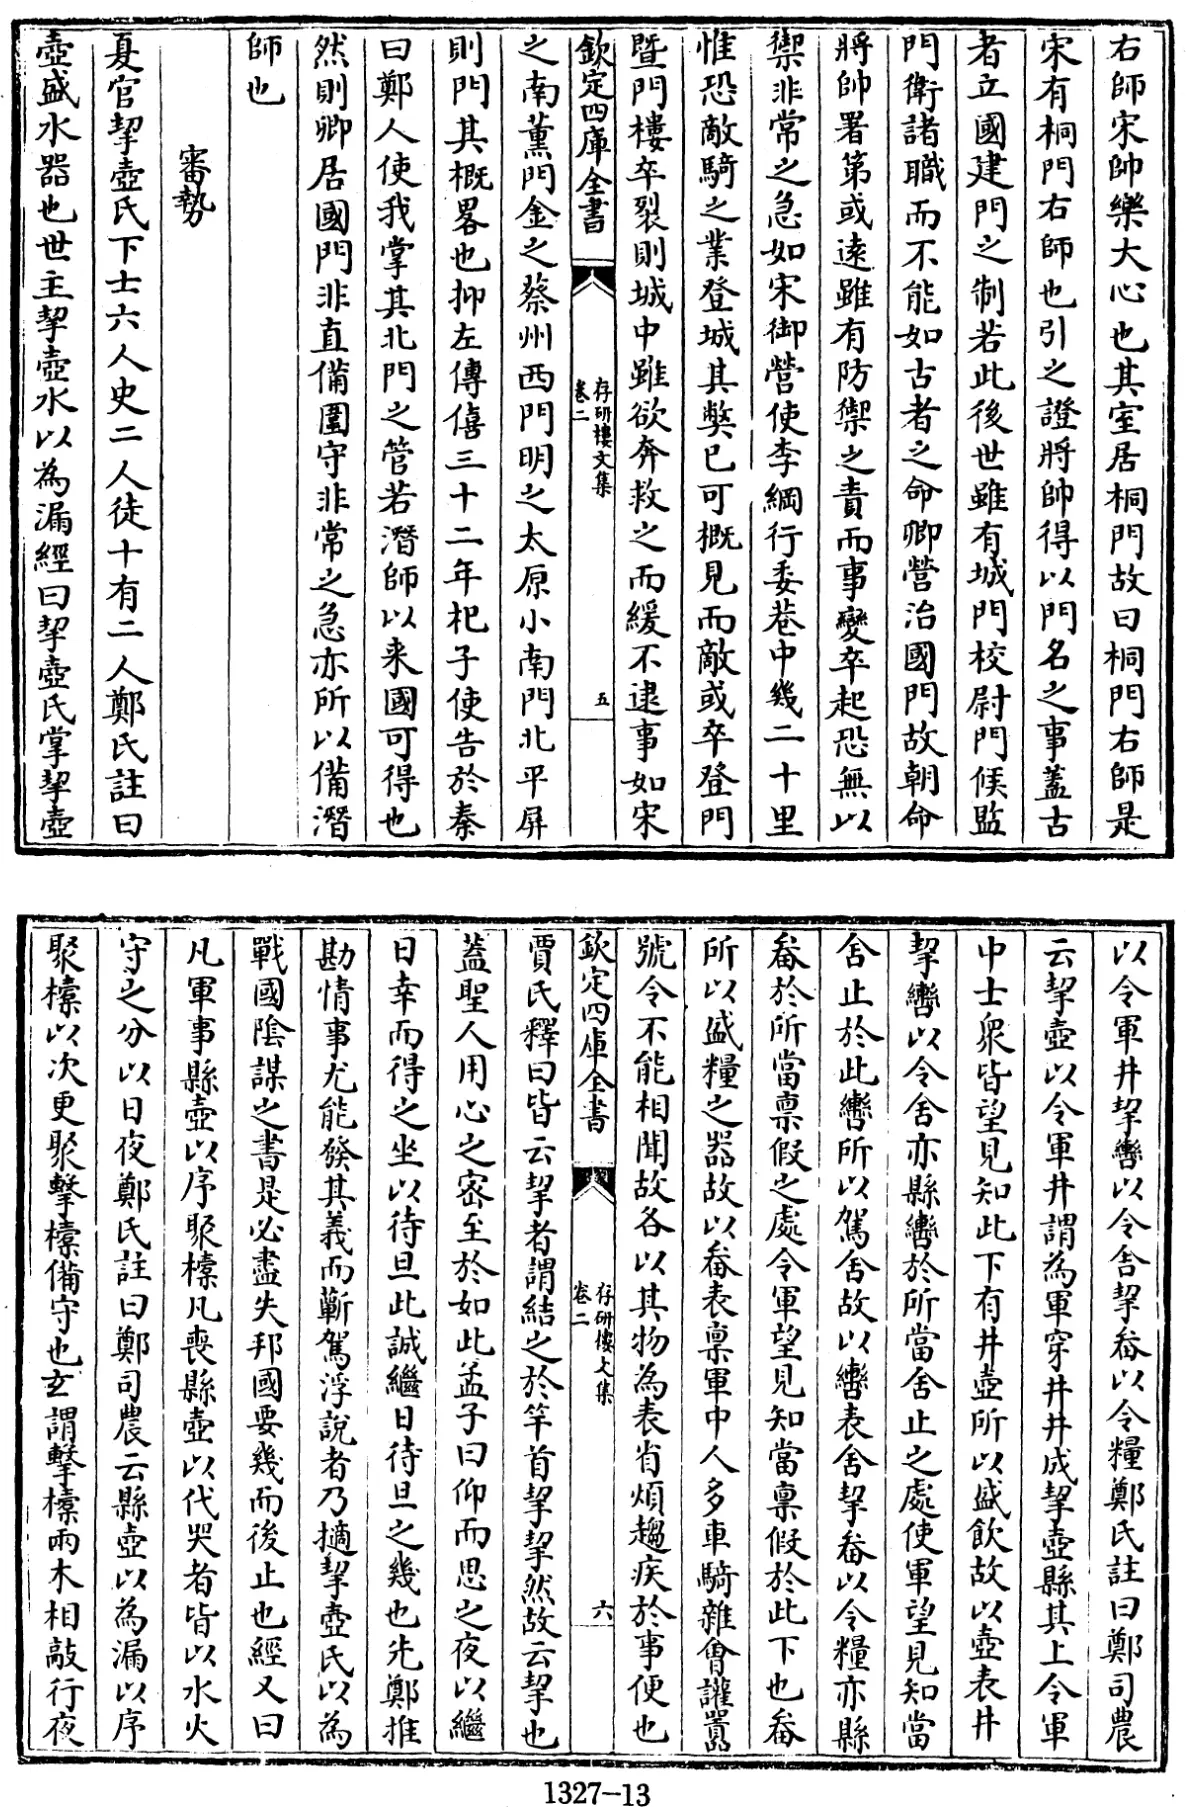 右師宋帥樂大心也其室居桐門故曰桐門右師是
宋有桐門右師也引之證將帥得以門名之事蓋古
者立國建門之制若此後世雖有城門校尉門候監
門衛諸職而不能如古者之命卿營治國門故朝命
將帥署第或逺雖有防禦之責而事變卒起恐無以
禦非常之急如宋御營使李綱行委巷中幾二十里
惟恐敵騎之業登城其弊已可概見而敵或卒登門
暨門樓卒裂則城中雖欲奔救之而緩不逮事如宋
欽定四庫全書
存研樓文集
卷二
五
之南薫門金之蔡州西門明之太原小南門北平屏
則門其概畧也抑左傳僖三十二年杞子使告於秦
曰鄭人使我掌其北門之管若潛師以来國可得也
然則卿居國門非直備圍守非常之急亦所以備潛
師也
審勢
夏官挈壺氏下士六人史二人徒十有二人鄭氏註曰
壺盛水器也世主挈壺水以為漏經曰挈壺氏掌挈壺
以令軍井挈轡以令舍挈畚以令糧鄭氏註曰鄭司農
云挈壺以令軍井謂為軍穿井井成挈壺縣其上令軍
中士衆皆望見知此下有井壺所以盛飲故以壺表井
挈轡以令舍亦縣轡於所當舍止之處使軍望見知當
舍止於此轡所以駕舍故以轡表舍挈畚以令糧亦縣
畚於所當禀假之處令軍望見知當禀假於此下也畚
所以盛糧之器故以畚表禀軍中人多車騎雜會讙囂
號令不能相聞故各以其物為表省煩趨疾於事便也
欽定四庫全書
存研樓文集
卷二
六
賈氏釋曰皆云挈者謂結之於竿首挈挈然故云挈也
蓋聖人用心之宻至於如此孟子曰仰而思之夜以繼
日幸而得之坐以待旦此誠繼日待旦之幾也先鄭推
勘情事尤能發其義而嶄駕浮説者乃擿挈壺氏以為
戰國陰謀之書是必盡失邦國要幾而後止也經又曰
凡軍事縣壺以序聚㯓凡喪縣壺以代哭者皆以水火
守之分以日夜鄭氏註曰鄭司農云縣壺以為漏以序
聚㯓以次更聚擊㯓備守也玄謂擊㯓兩木相敲行夜
1327-13